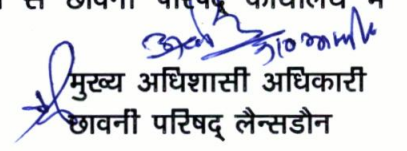 से छावनी परिषद् कार्यालय में
मुख्य अधिशासी अधिकारी
छावनी परिषद् लैन्सडौन